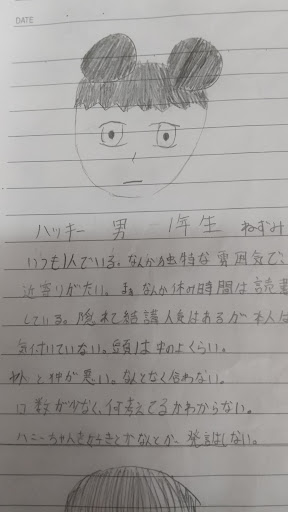 DATE
ハッキー 男 1年生 ねずみ
いつも1人でいる。なんか独特な雰囲気で、
近寄りがたい。まぁなんか休み時間は読書
している。隠れて結構人気はあるが本人は
気付いていない。頭は中のよくらい。
と仲が悪い。なんとなく合わない。
口数が少なく、何考えてるかわからない。
ハニーちゃん 好きとかなんとか。発言はしない。